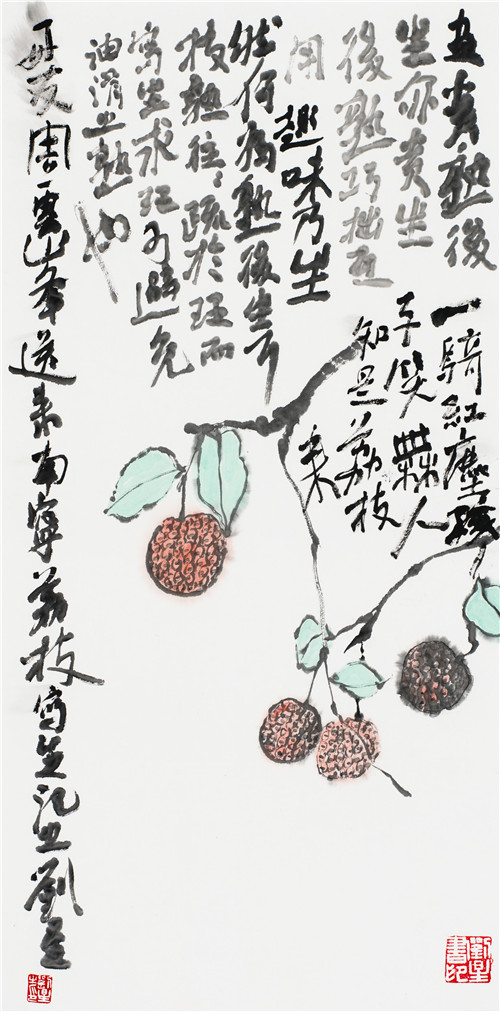 畫貴熟後
生亦贵生
後熟巧拙互
用趣味乃生
然何為熟後生
枝熟往々疏於理而
寫生求理可避免
油滑之熟也
一騎紅塵妃
子笑無人
知是荔枝
來
夏周雲山年送来南寧荔枝寫生記之劉星
劉星
劉星書印